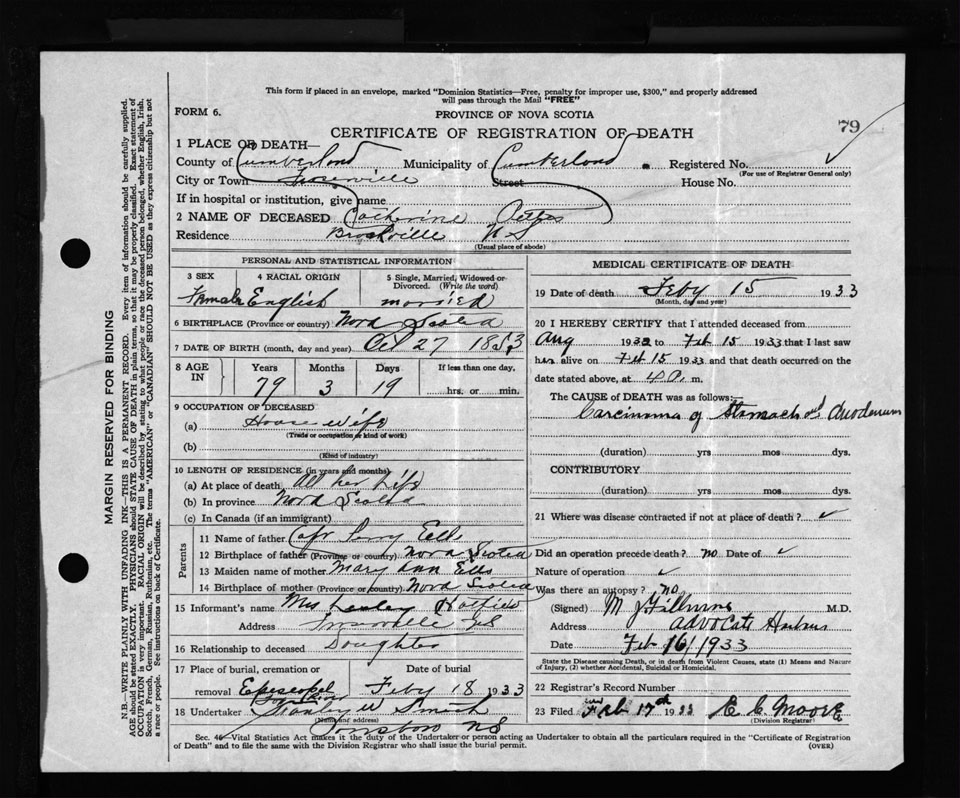 This form if placed in an envelope, marked "Dominion Statistics—Free, penalty for improper use, $300," and properly addressed
will pass through the Mail "FREE"
FORM 6.
PROVINCE OF NOVA SCOTIA
79
CERTIFICATE OF REGISTRATION OF DEATH
1 PLACE OF DEATH—
County of Cumberland Municipality of Cumberland Registered No.
(For use of Registrar General only)
City or Town Street House No.
If in hospital or institution, give name
2 NAME OF DECEASED Catherine
Residence Brookville N S
(Usual place of abode)
PERSONAL AND STATISTICAL INFORMATION
3 SEX 4 RACIAL ORIGIN 5 Single, Married, Widowed or Divorced. (Write the word)
Female English married
6 BIRTHPLACE (Province or country) Nova Scotia
7 DATE OF BIRTH (month, day and year) Oct 27 1853
8 AGE IN Years Months Days If less than one day,
79 3 19 hrs. or min.
9 OCCUPATION OF DECEASED
(a) House wife
(Trade or occupation or kind of work)
(b)
(Kind of industry)
10 LENGTH OF RESIDENCE (in years and months)
(a) At place of death All her Life
(b) In province Nova Scotia
(c) In Canada (if an immigrant)
Parents
11 Name of father Capt Perry Eells
12 Birthplace of father (Province or country) Nova Scotia
13 Maiden name of mother Mary Ann Eells
14 Birthplace of mother (Province or country) Nova Scotia
15 Informant's name Mrs Lesley Hatfield
Address NS
16 Relationship to deceased Doughter
17 Place of burial, cremation or Date of burial
removal Episcopal Feby 18 1933
18 Undertaker Stanley W Smith
(Name and address)
Parrsboro NS
MEDICAL CERTIFICATE OF DEATH
19 Date of death Feby 15 1933
(Month, day and year)
20 I HEREBY CERTIFY that I attended deceased from
Aug 1932 to Feb 15 1933 that I last saw
her alive on Feb 15 1933 and that death occurred on
date stated above, at 4 a. m.
The CAUSE of DEATH was as follows:—
Carcinoma of Stomach and duodenum
(duration) yrs mos dys.
CONTRIBUTORY
(duration) yrs mos dys.
21 Where was disease contracted if not at place of death?
Did an operation precede death? no Date of
Nature of operation
Was there an autopsy? no
(Signed) M.D.
Address Advocate Harbour
Date Feb 16/1933
State the Disease causing Death, or in death from Violent Causes, state (1) Means and Nature
of Injury, (2) whether Accidental, Suicidal or Homicidal.
22 Registrar's Record Number
23 Filed Feb 17th 1933 E C Moore
(Division Registrar)
Sec. 46—Vital Statistics Act makes it the duty of the Undertaker or person acting as Undertaker to obtain all the particulars required in the "Certificate of Registration
of Death" and to file the same with the Division Registrar who shall issue the burial permit. (OVER)
MARGIN RESERVED FOR BINDING
N.B.—WRITE PLAINLY WITH UNFADING INK—THIS IS A PERMANENT RECORD. Every item of information should be carefully supplied.
AGE should be stated EXACTLY. PHYSICIANS should STATE CAUSE OF DEATH in plain terms, so that it may be properly classified. Exact statement of
OCCUPATION is very important. RACIAL ORIGIN will be described by stating to what people or race the deceased person belonged, whether English, Irish,
Scotch, French, German, Russian, Ruthenian, etc. The terms "AMERICAN" or "CANADIAN" SHOULD NOT BE USED as they express citizenship but not
a race or people. See instructions on back of Certificate.